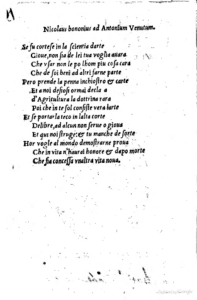 Nicolaus bononius ad Antonium Venutum.
Se fu cortese in la scientia darte
Gioue, non sia de lei tua voglia auara
Che vsar non le po lhom piu cosa cara
Che de soi beni ad altri farne parte
Pero prende la penna inchiostro & carte
Et a noi desiosi ormai declara
d'Agricultura la dottrina rara
Poi che in te sol consiste vera larte
Et se portar la teco in lalta corte
Delibre, ad alcun non serue o gioua
Et qui nosstruge: & tu manche de sorte
Hor vogle al mondo demostrarne proua
Che in vita n'haurai honore & dapo morte
Che sia concessa vnaltra vita noua.